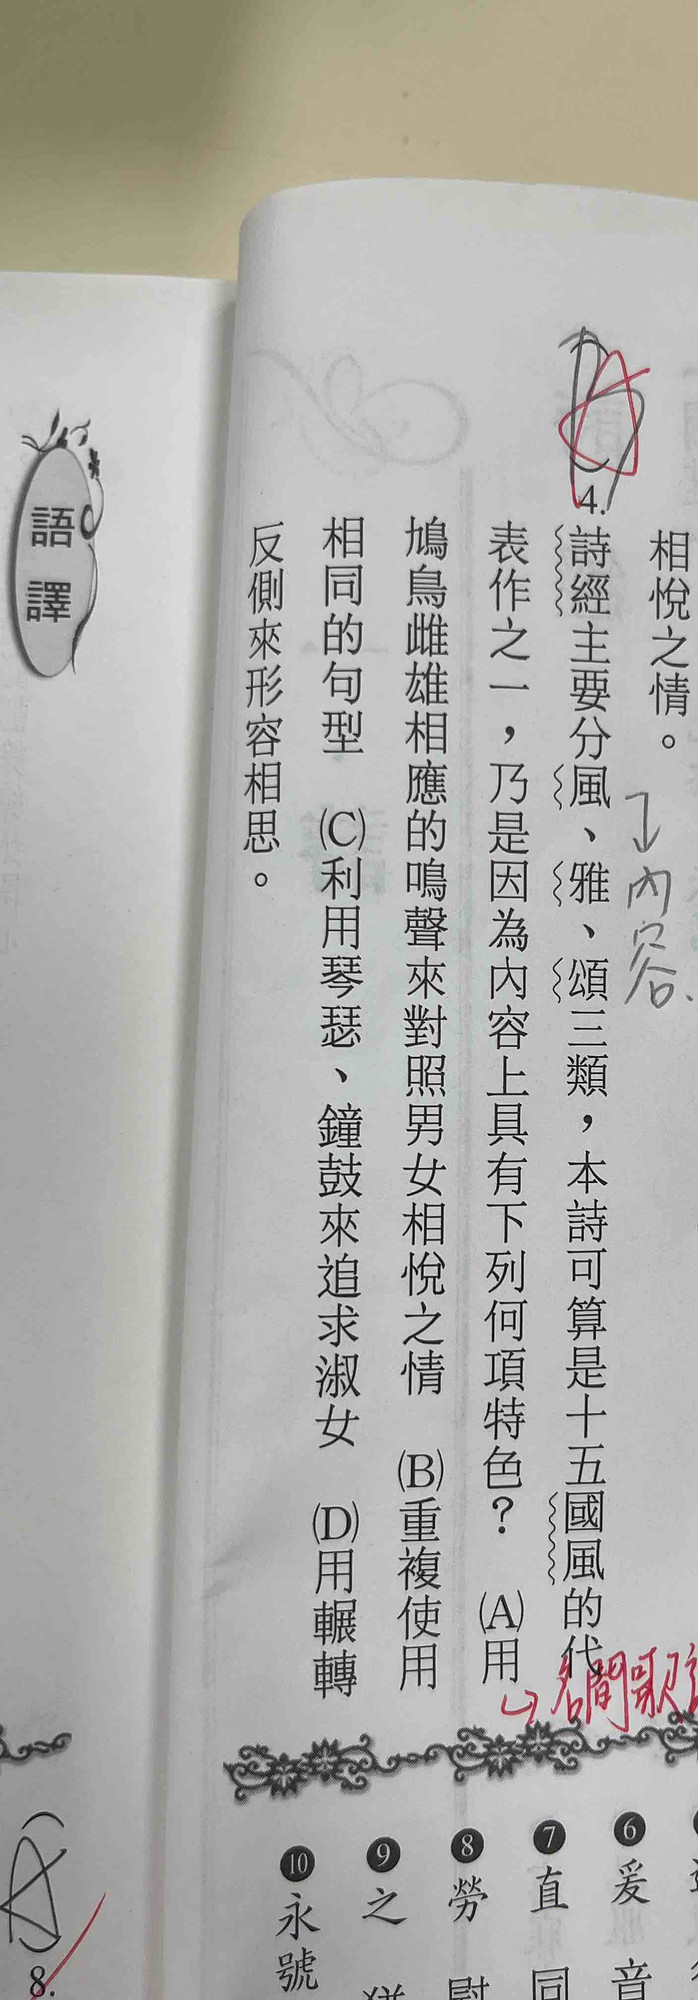 相悅之情。
→內容.
4.詩經主要分風、雅、頌三類，本詩可算是十五國風的代
表作之一，乃是因為內容上具有下列何項特色？ (A)用
鳩鳥雌雄相應的鳴聲來對照男女相悅之情 (B)重複使用
相同的句型 (C)利用琴瑟、鐘鼓來追求淑女 (D)用輾轉
反側來形容相思。
A
語譯
6 爰 音
7 直 同
8 勞
9 之 猶
10 永號
(A)
8.